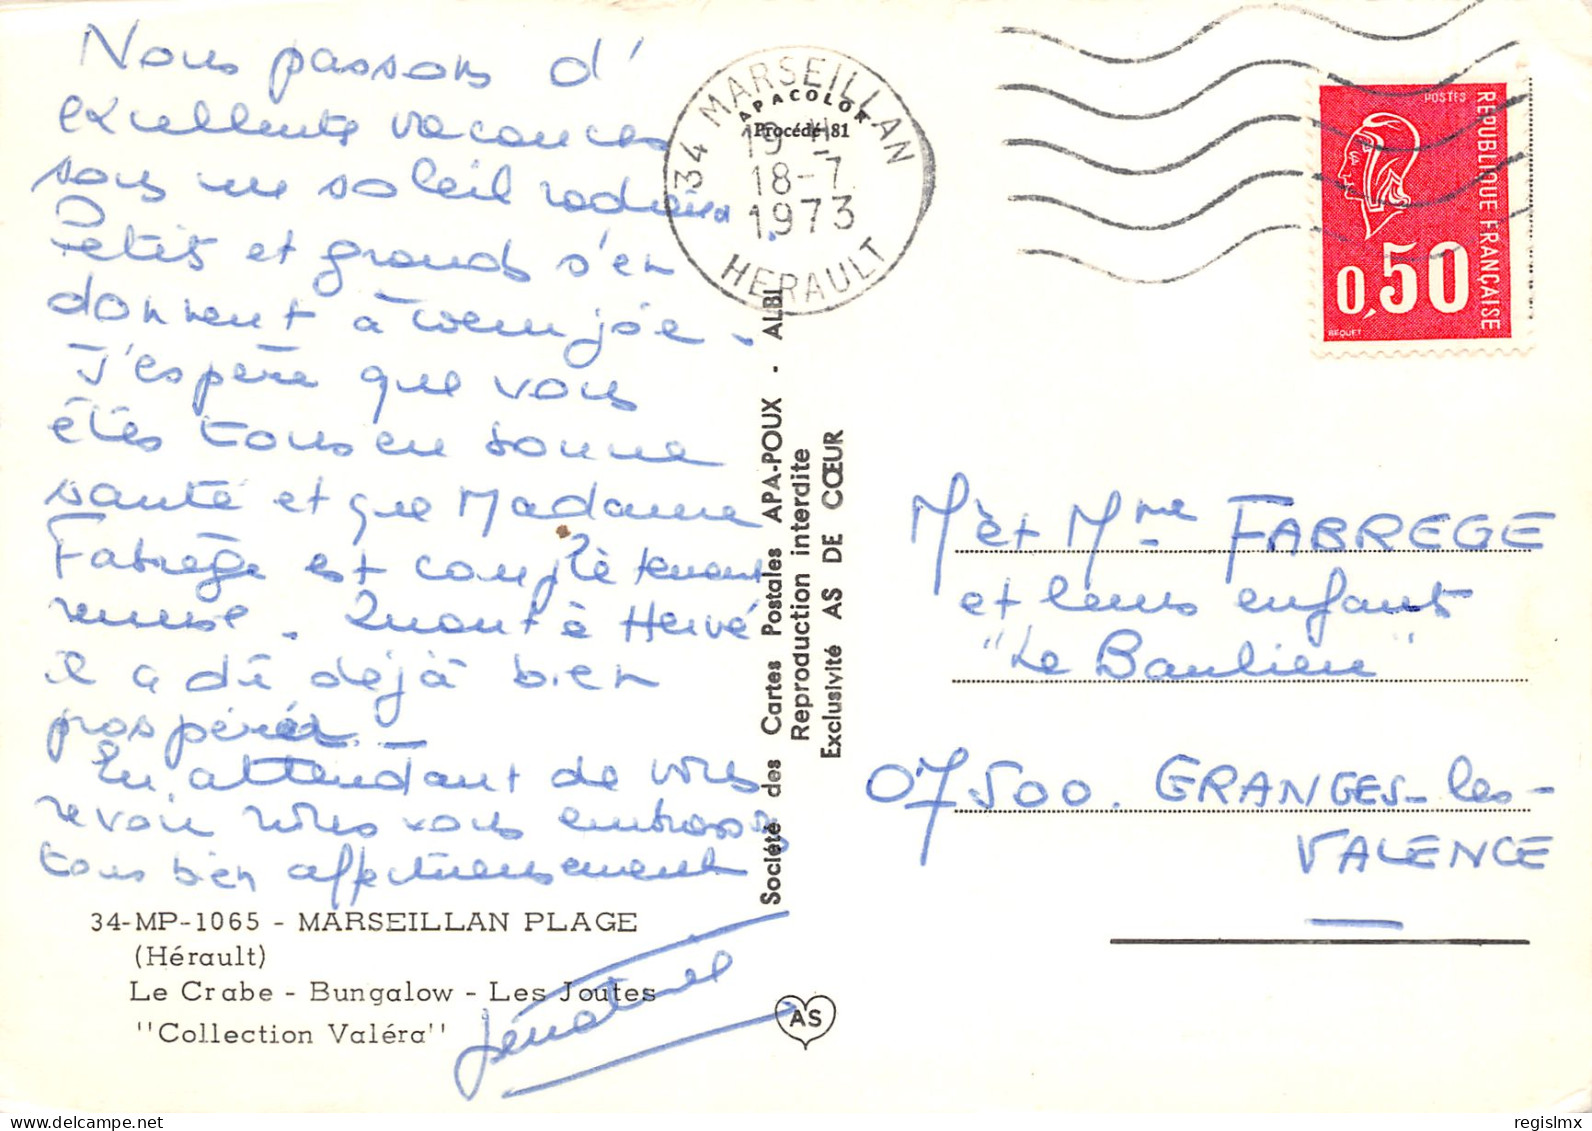 Nous passons d'
excellentes vacances
sous un soleil radieux.
Petits et grands s'en
donnent à cœur joie.
J'espère que vous
êtes tous en bonne
santé et que Madame
Fabrège est complètement
remise. Quant à Hervé
il a dû déjà bien
prospérer.
En attendant de vous
revoir nous vous embrassons
tous bien affectueusement
34-MP-1065 - MARSEILLAN PLAGE
(Hérault)
Le Crabe - Bungalow - Les Joutes
"Collection Valéra"
Société des Cartes Postales APA-POUX - ALBI
Reproduction interdite
Exclusivité AS DE CŒUR
AS
APACOLOR
Procédé 81
34 MARSEILLAN
19 H
18-7
1973
HERAULT
POSTES
REPUBLIQUE FRANÇAISE
0,50
BEQUET
Mr et Mme FABREGE
et leurs enfants
"Le Baulieu"
07500. GRANGES-les-
VALENCE
regislmx